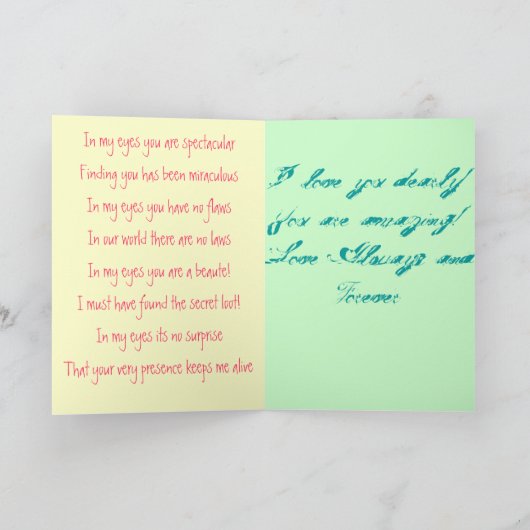 In my eyes you are spectacular
Finding you has been miraculous
In my eyes you have no flaws
In our world there are no laws
In my eyes you are a beaute!
I must have found the secret loot!
In my eyes its no surprise
That your very presence keeps me alive
I love you dearly!
You are amazing!
Love Always and
Forever